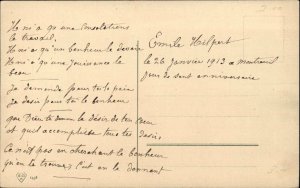 Il n'i a qu'une Consolations
le travail,
Il n'i a qu'un bonheur le devoir
Il n'i a qu'une Jouissance le
beau
Je demande pour toi la paix
Je desir pour toi le bonheur
que Dieu te donne le désir de ton Cœur
et qu'il accomplisse tous tes désirs,
Ce n'est pas en cherchant le bonheur
qu'on le trouve; C'est en le donnant
Emile Hilpert
le 26 Janvier 1913 a Montreuil
jour de sont anniversaire